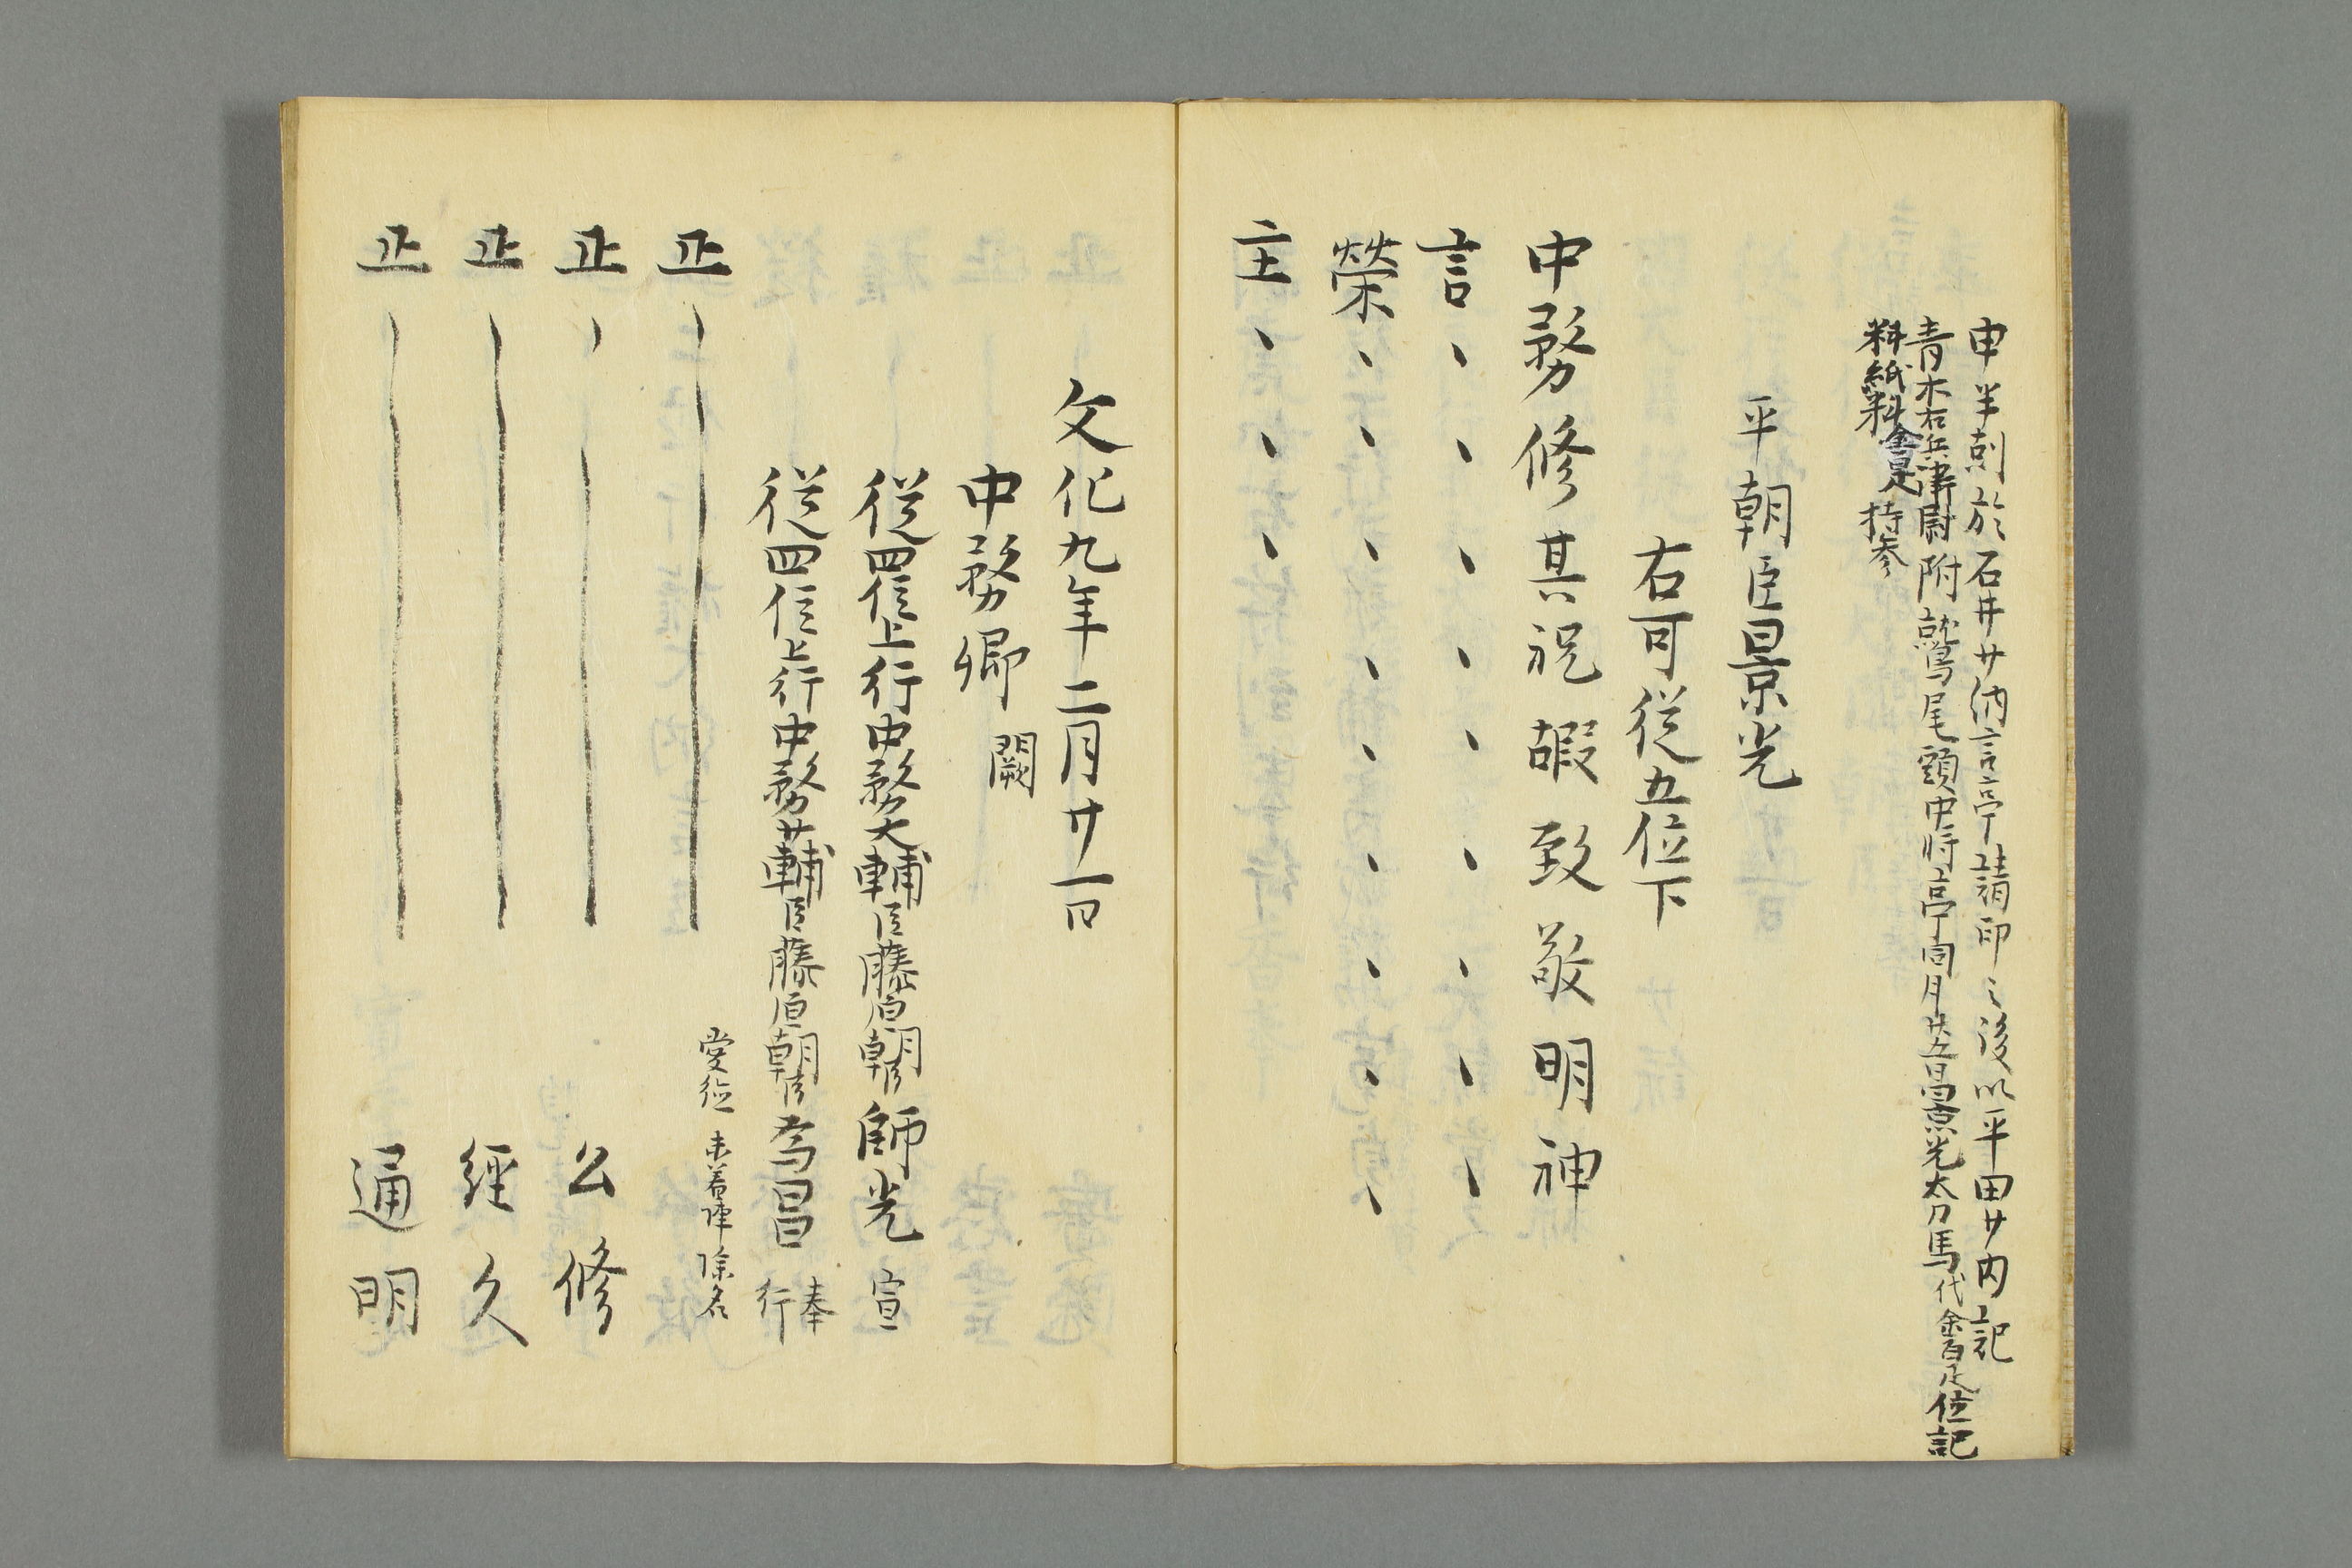 申半剋於石井廿納言亭請印之後以平田廿内記
青木右兵衛尉附鷲尾頭中将亭同月廿五昌景光太刀馬代金百疋位記
料紙料金百疋持参
平朝臣景光
右可従五位下
中務修其祝嘏致敬明神
言、、、、、、、、
榮、、、、、、、、、
主、、、
文化九年二月廿一日
中務卿 闕
従四位上行中務大輔臣藤原朝臣師光 宣
従四位上行中務廿輔臣藤原朝臣為昌 奉行
正 愛徳 未着陣除名
正 公修
正 經久
正 通明